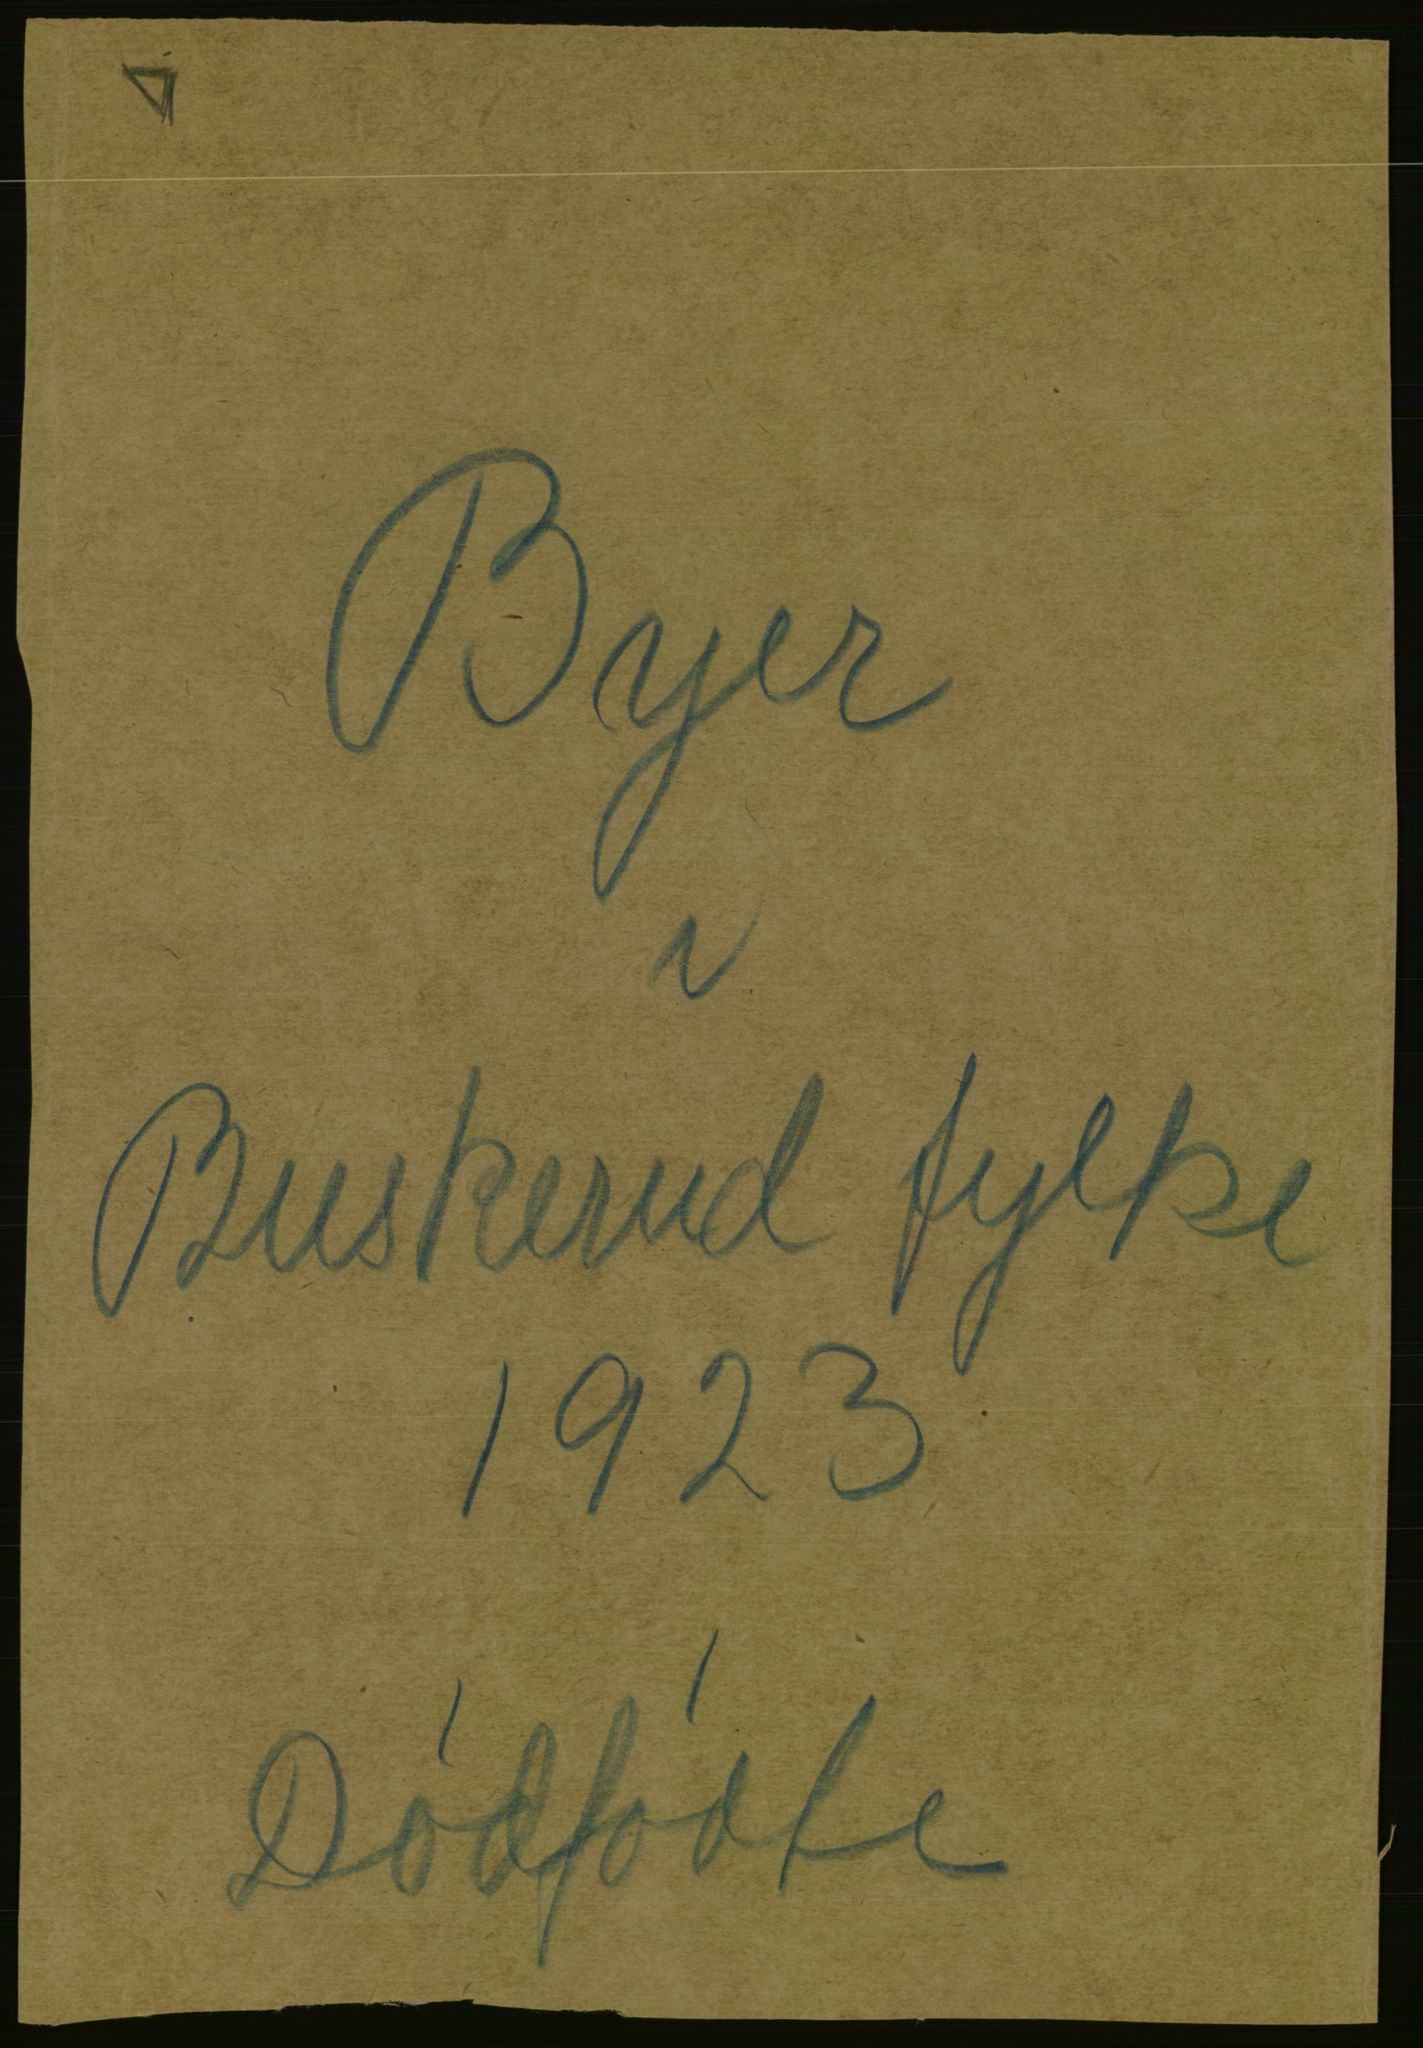 Byer
i
Buskerud fylke
1923
Dódfódte